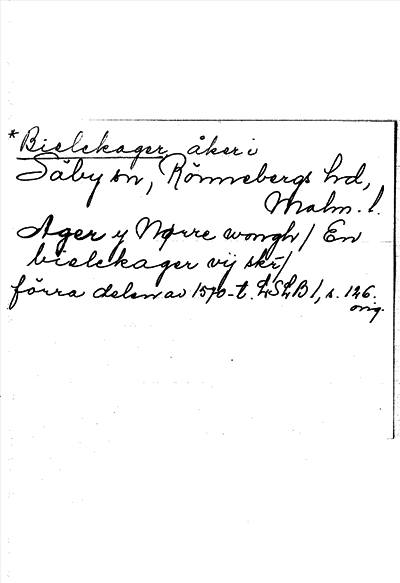 *Bielckager, åker i
Säby sn, Rönnebergs hd,
Malm. l.
Ager y Nørre wongh / En
bielckager vij skr/
förra delen av 1570-t. LSLB 1, s. 126.
orig.